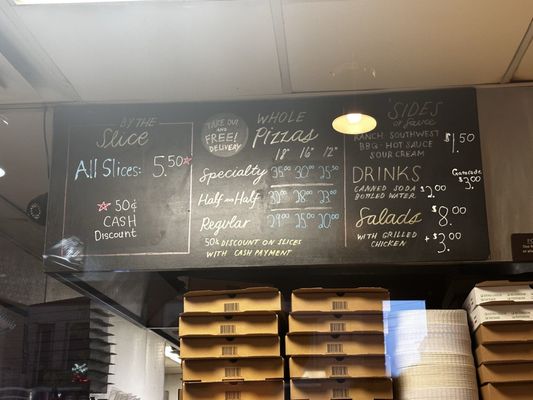 BY THE
Slice
All Slices: 5.50
50¢
CASH
Discount
TAKE OUT
AND
FREE!
DELIVERY
WHOLE
Pizzas
18" 16" 12"
Specialty 30.00 25.50
Half and Half
Regular 25.00 20.00
50¢ DISCOUNT ON SLICES
WITH CASH PAYMENT
SIDES
of Sauce
RANCH · SOUTHWEST
BBQ · HOT SAUCE
SOUR CREAM
$1.50
DRINKS
CANNED SODA
BOTTLED WATER
$2.00
Gatorade
$3.00
Salads $8.00
WITH GRILLED
CHICKEN
+$3.00